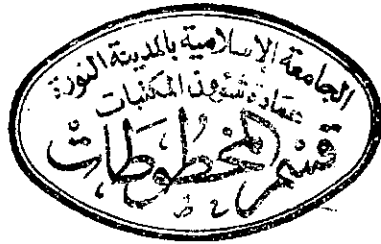 الجامعة الإسلامية بالمدينة المنورة
عمادة شئون المكتبات
قسم المخطوطات